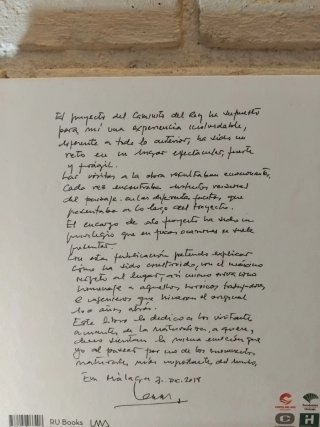 El proyecto del Caminito del Rey ha supuesto
para mí una experiencia inolvidable,
diferente a todo lo anterior, ha sido un
reto en un lugar espectacular, fuerte
y frágil.
Las visitas a la obra resultaban emocionantes,
Cada vez encontraba instantes
del paisaje, en las diferentes
a lo largo del trayecto.
El encargo de este proyecto ha sido un
privilegio que en pocas ocasiones se suele
presentar.
Con esta publicación pretendo explicar
cómo ha sido construido, con el máximo
respeto al lugar, así como sirva como
homenaje a aquellos heroicos trabajadores
e ingenieros que hicieron el original
años atrás.
Este libro lo dedico a los visitantes
amantes de la naturaleza, a quienes
deseo sientan la misma emoción que
yo al pasear por uno de los monumentos
naturales más importantes del mundo.
En Málaga DIC. 2018
RU Books LMA